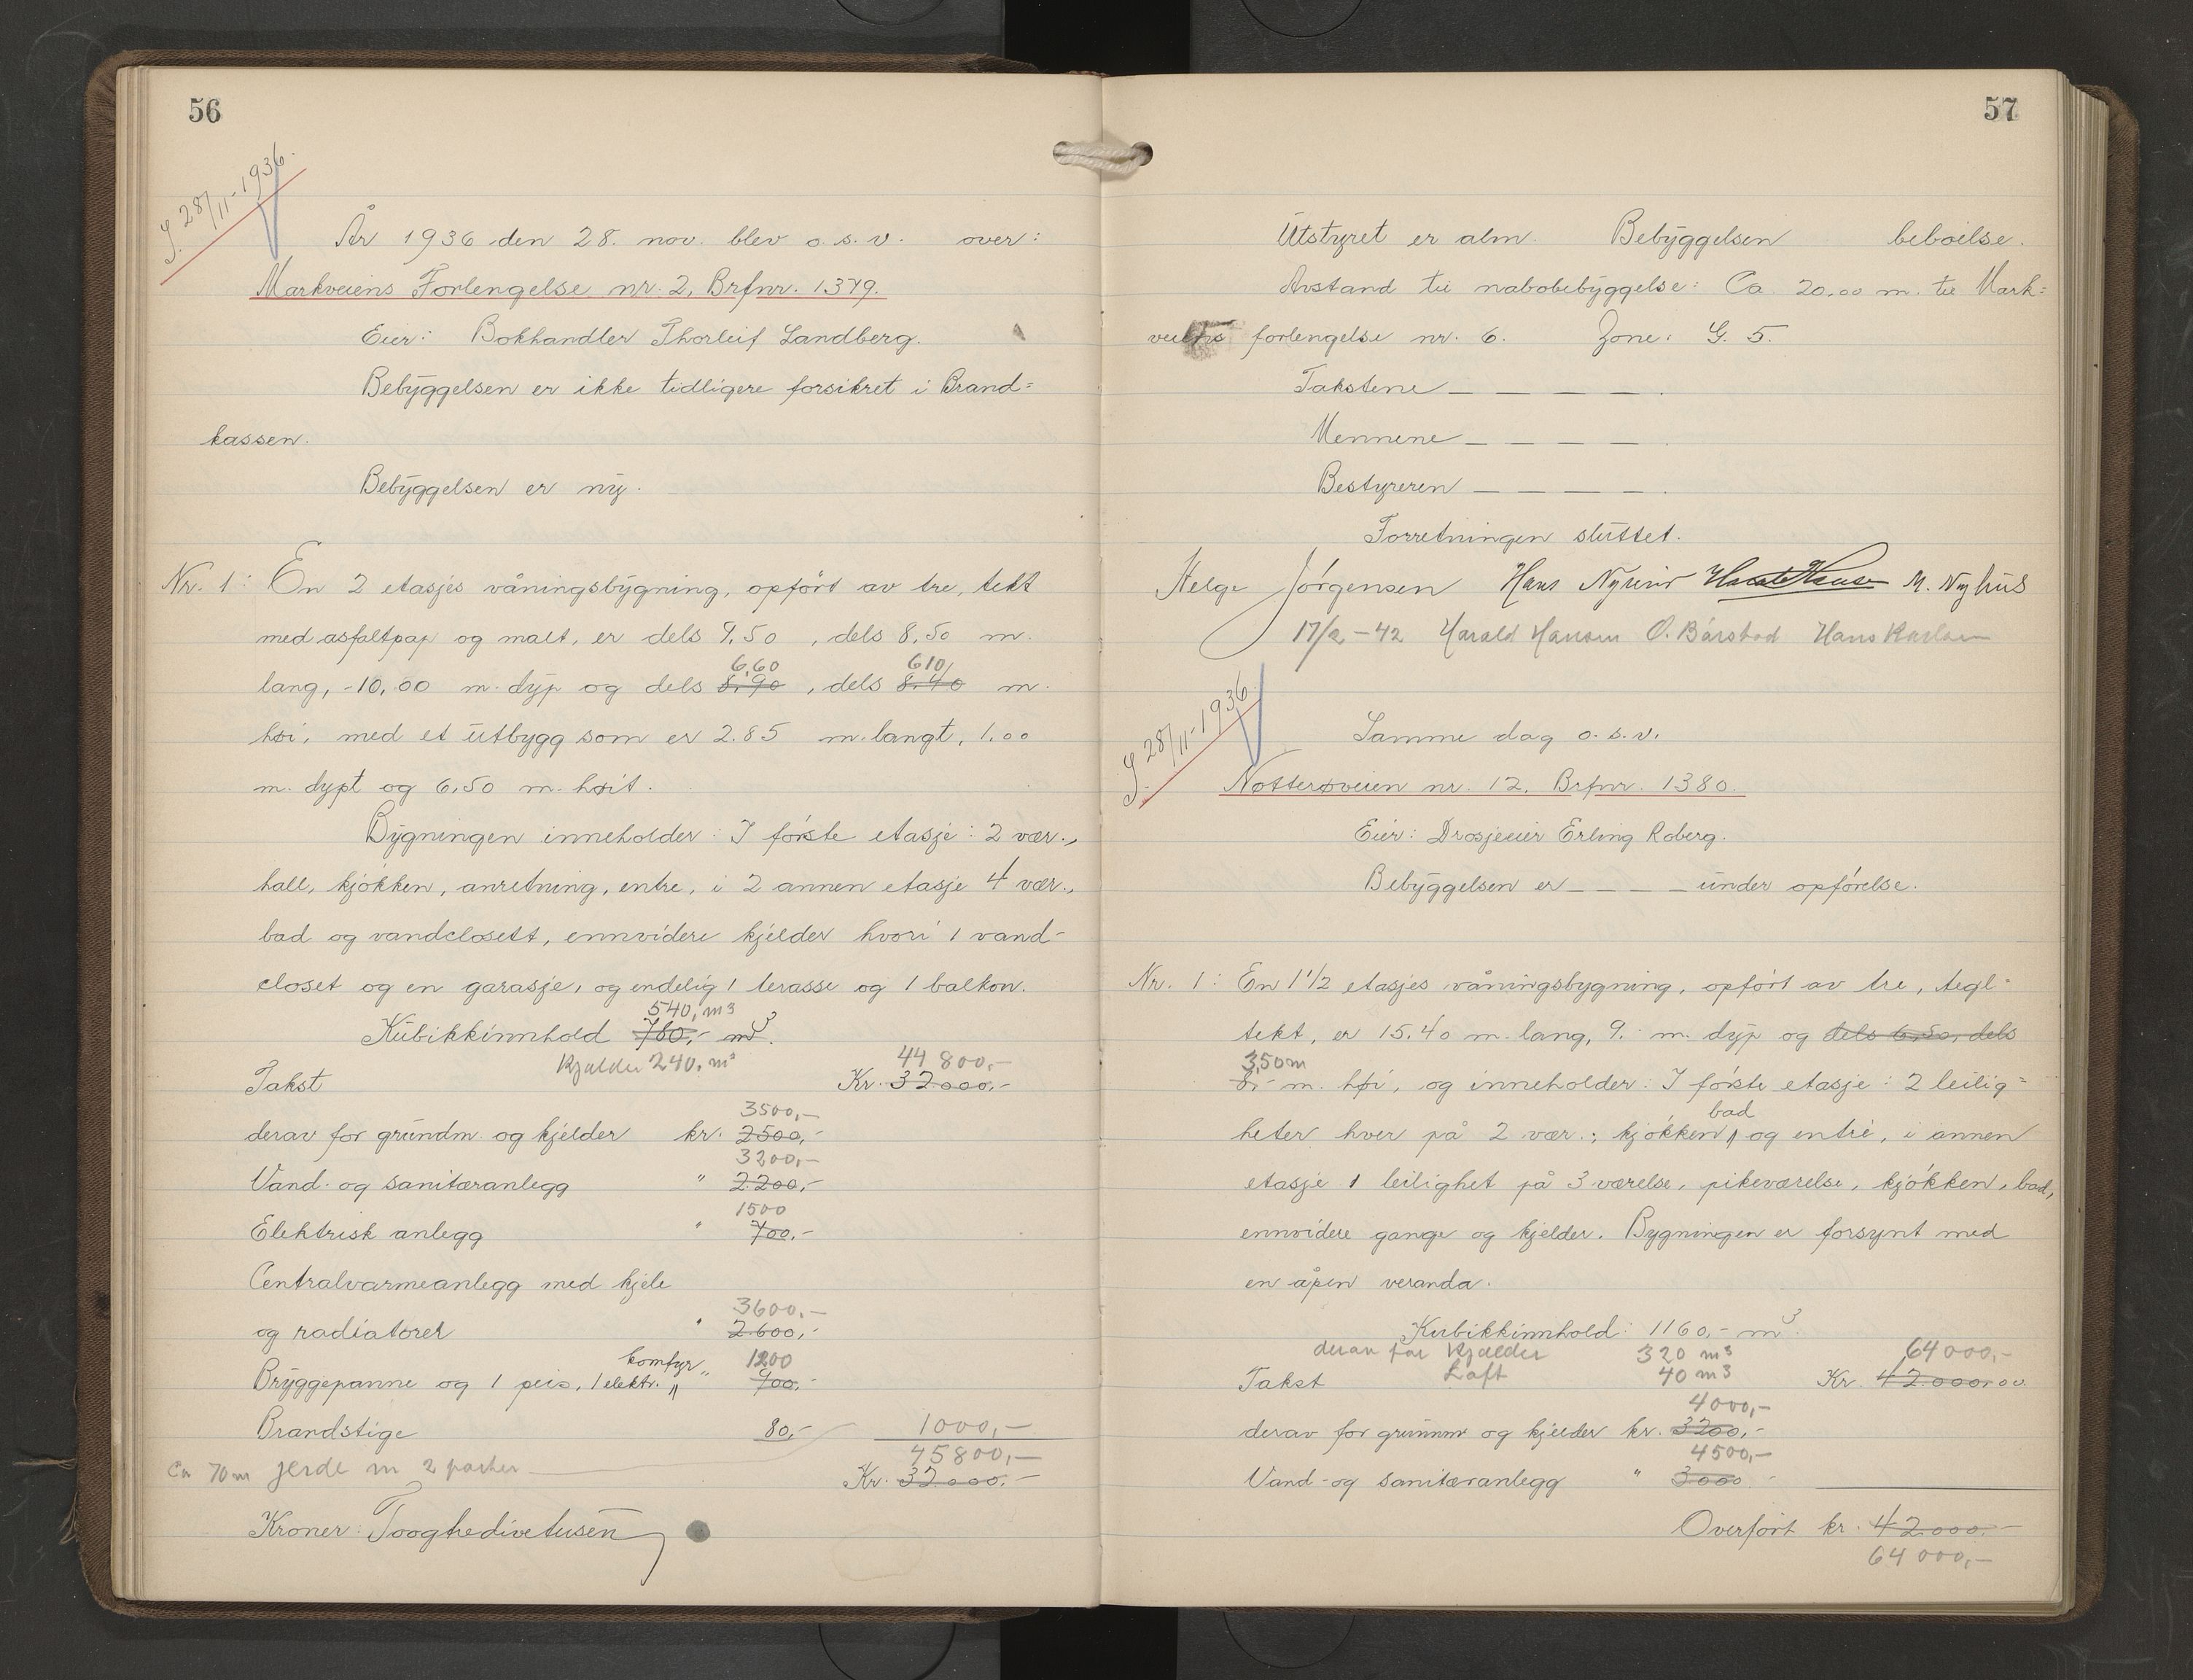 56
J. 28/11-1936.
År 1936 den 28. nov. blev o. s. v. over:
Markveiens Forlengelse nr. 2, Brfnr. 1379.
Eier: Bokhandler Thorleif Landberg.
Bebyggelsen er ikke tidligere forsikret i Brand=
kassen.
Bebyggelsen er ny.
Nr. 1: En 2 etasjes våningsbygning, opført av tre, tekt
med asfaltpap og malt, er dels 9,50 , dels 8,50 m.
6,60 610,
lang, -10,00 m. dyp og dels 8,90 , dels 8,40 m.
høi, med et utbygg som er 2.85 m. langt, 1,00
m. dypt og 6,50 m. høit.
Bygningen inneholder: I første etasje: 2 vær.,
hall, kjøkken, anretning, entre, i 2 annen etasje 4 vær.,
bad og vandclosett, ennvidere kjelder hvori 1 vand-
closet og en garasje, og endelig 1 terasse og 1 balkon.
540, m3
Kubikkinnhold 780,- m3.
Kjelder 240, m3 44 800,-
Takst Kr. 32000,-
3500,-
derav for grundm. og kjelder kr. 2500,-
3200,-
Vand- og sanitæranlegg " 2200,-
1500
Elektrisk anlegg " 700,-
Centralvarmeanlegg med kjele
3600,-
og radiatorer " 2.600,-
komfyr " 1200
Bryggepanne og 1 peis, 1 elektr. " 900,-
Brandstige 80,- 1000,-
45800,-
Ca 70m jerde m 2 porter
Kr. 32000,-
Kroner Tooghtredivetusen
57
Utstyret er alm. Bebyggelsen beboilse.
Avstand til nabobebyggelse: Ca. 20,00 m. til Mark=
veiens forlengelse nr. 6. Zone: G. 5.
Takstene — — — — .
Mennene — — — — .
Bestyreren — — — — .
Forretningen sluttet.
Helge Jørgensen Hans M. Nyhus
17/2-42 Harald Hansen O. Bårstad Hans Karlsen
J. 28/11-1936.
Samme dag o. s. v.
Nøtterøveien nr. 12, Brfnr. 1380.
Eier: Drosjeeier Erling Roberg.
Bebyggelsen er — — — — under opførelse.
Nr. 1: En 1 1/2 etasjes våningsbygning, opført av tre, tegl-
tekt, er 15.40 m. lang, 9.- m. dyp og dels 6,50, dels
3,50m
8,- m. høi, og inneholder: I første etasje: 2 leilig=
bad
heter hver på 2 vær., kjøkken, og entré, i annen
etasje 1 leilighet på 3 værelse, pikeværelse, kjøkken, bad,
ennvidere gange og kjelder. Bygningen er forsynt med
en åpen veranda.
Kubikkinnhold: 1160,- m3.
derav for Kjælder 320 m3 64 000,-
Loft 40 m3
Takst Kr. 42.000,00.
4000,-
derav for grunnm og kjelder kr. 3200,-
4500,-
Vand- og sanitæranlegg " 3000 -
Overført kr. 42.000,-
64 000,-